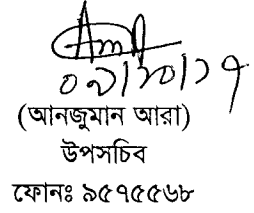 ০৯/১০/১৭
(আনজুমান আরা)
উপসচিব
ফোনঃ ৯৫৭৫৫৬৮